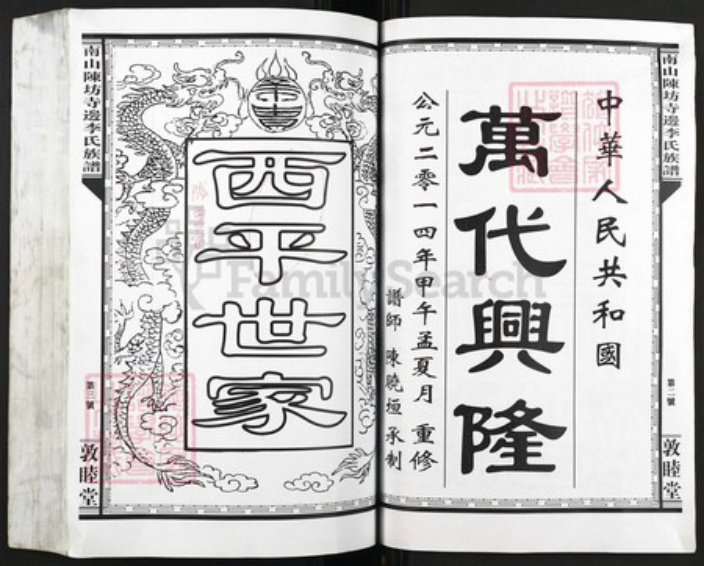 南山陳坊寺邊李氏族譜
第二號
敦睦堂
中華人民共和國
萬代興隆
公元二零一四年甲午孟夏月 重修
譜師 陳曉垣 承制
西平世家
南山陳坊寺邊李氏族譜
第三號
敦睦堂
FamilySearch